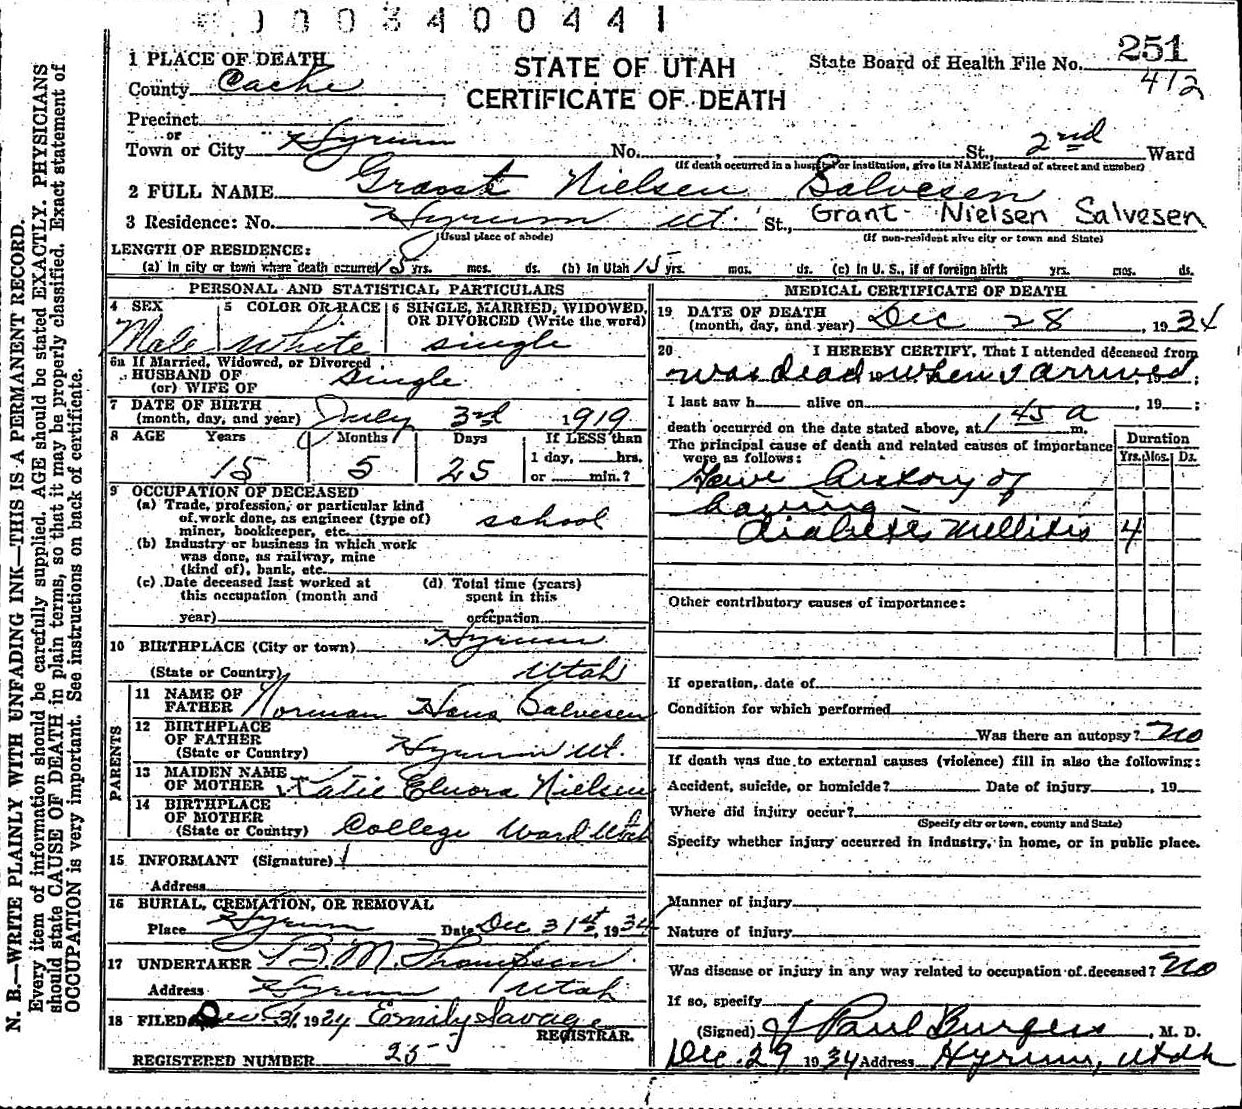 0003400441
251
1 PLACE OF DEATH
STATE OF UTAH
State Board of Health File No.
412
County Cache
CERTIFICATE OF DEATH
Precinct
or
Town or City Hyrum No. , St., 2nd Ward
(If death occurred in a hospital or institution, give its NAME instead of street and number)
2 FULL NAME Grant Nielsen Salvesen
3 Residence: No. Hyrum Ut. St., Grant Nielsen Salvesen
(Usual place of abode) (If non-resident give city or town and State)
LENGTH OF RESIDENCE:
(a) In city or town where death occurred 15 yrs. mos. ds. (b) In Utah 15 yrs. mos. ds. (c) In U. S., if of foreign birth yrs. mos. ds.
PERSONAL AND STATISTICAL PARTICULARS
4 SEX 5 COLOR OR RACE 6 SINGLE, MARRIED, WIDOWED, OR DIVORCED (Write the word)
Male White single
6a If Married, Widowed, or Divorced
HUSBAND OF
(or) WIFE OF single
7 DATE OF BIRTH
(month, day, and year) July 3rd 1919
8 AGE Years Months Days If LESS than
1 day, hrs.
15 5 25 or min.?
9 OCCUPATION OF DECEASED
(a) Trade, profession, or particular kind
of work done, as engineer (type of)
miner, bookkeeper, etc. school
(b) Industry or business in which work
was done, as railway, mine
(kind of), bank, etc.
(c) Date deceased last worked at (d) Total time (years)
this occupation (month and spent in this
year) occupation
10 BIRTHPLACE (City or town) Hyrum
(State or Country) Utah
PARENTS
11 NAME OF
FATHER Norman Hans Salvesen
12 BIRTHPLACE
OF FATHER
(State or Country) Hyrum Ut.
13 MAIDEN NAME
OF MOTHER Katie Elnora Nielsen
14 BIRTHPLACE
OF MOTHER
(State or Country) College Ward Utah
15 INFORMANT (Signature)
Address
16 BURIAL, CREMATION, OR REMOVAL
Place Hyrum Date Dec 31st, 1934
17 UNDERTAKER B. M. Thompson
Address Hyrum Utah
18 FILED Dec 31 1934 Emily Savage
REGISTRAR.
REGISTERED NUMBER 25
MEDICAL CERTIFICATE OF DEATH
19 DATE OF DEATH
(month, day, and year) Dec 28, 1934
20 I HEREBY CERTIFY, That I attended deceased from
was dead when I arrived, 19 ;
I last saw h alive on , 19 ;
death occurred on the date stated above, at 1 45 a m.
The principal cause of death and related causes of importance
were as follows:
Duration
Yrs. Mos. Ds.
Gave history of
having
diabetes mellitis 4
Other contributory causes of importance:
If operation, date of
Condition for which performed
Was there an autopsy? no
If death was due to external causes (violence) fill in also the following:
Accident, suicide, or homicide? Date of injury , 19
Where did injury occur?
(Specify city or town, county and State)
Specify whether injury occurred in industry, in home, or in public place.
Manner of injury
Nature of injury
Was disease or injury in any way related to occupation of deceased? no
If so, specify
(Signed) J Paul Burgess, M. D.
Dec 29 1934 Address Hyrum, Utah
N. B.—WRITE PLAINLY WITH UNFADING INK—THIS IS A PERMANENT RECORD.
Every item of information should be carefully supplied. AGE should be stated EXACTLY. PHYSICIANS
should state CAUSE OF DEATH in plain terms, so that it may be properly classified. Exact statement of
OCCUPATION is very important. See instructions on back of certificate.